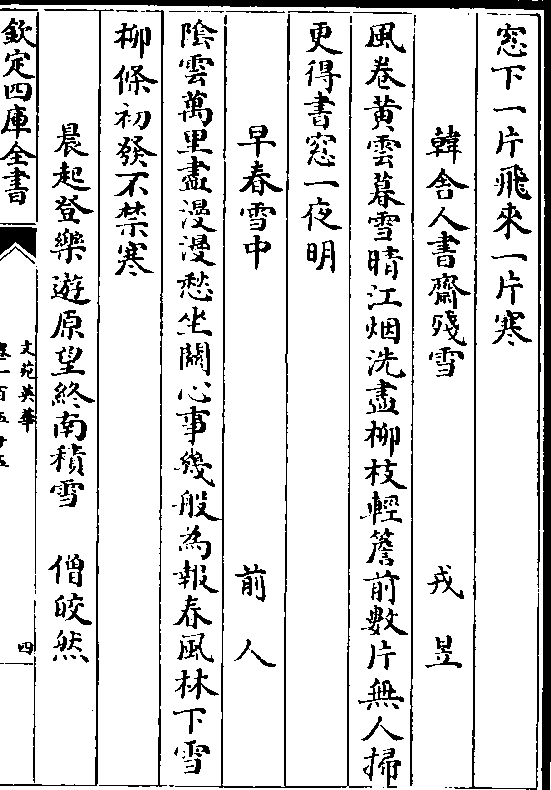 窓下一片飛來一片寒
韓舎人書齋殘雪 戎昱
風卷黄雲暮雪晴江烟洗盡柳枝輕簷前數片無人掃
更得書窓一夜明
早春雪中 前人
隂雲萬里盡漫漫愁坐關心事幾般為報春風林下雪
柳條初發不禁寒
晨起登樂遊原望終南積雪 僧皎然
欽定四庫全書
文苑英華
卷一百五十五
四